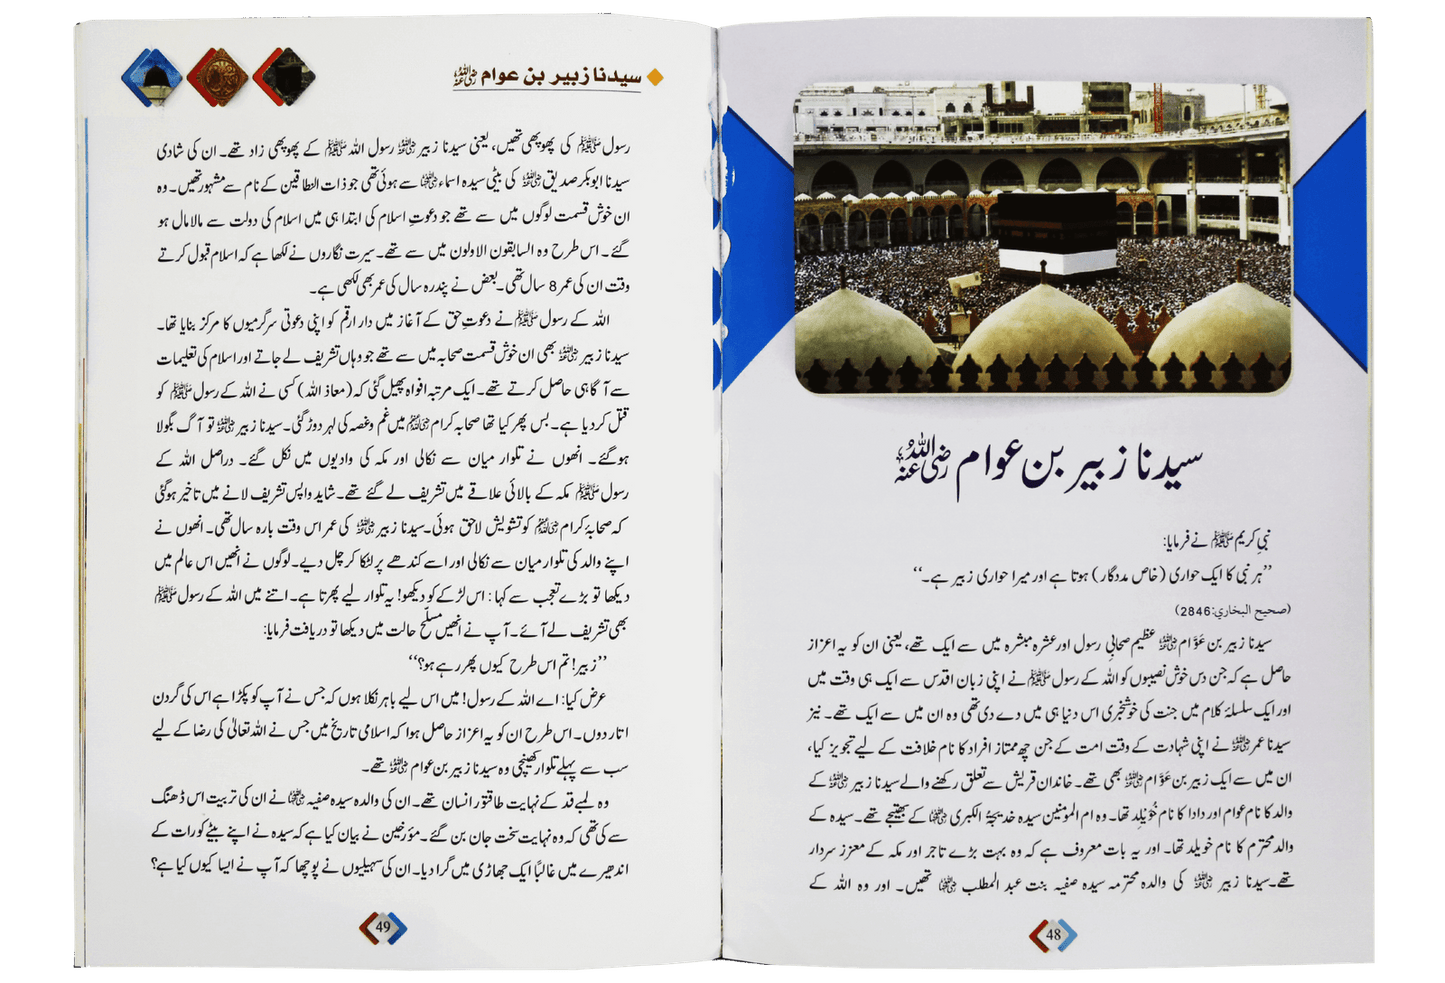 سیدنا زبیر بن عوام رضی اللہ عنہ
نبیِ کریم ﷺ نے فرمایا:
’’ہر نبی کا ایک حواری (خاص مددگار) ہوتا ہے اور میرا حواری زبیر ہے۔‘‘
(صحیح البخاري:2846)
سیدنا زبیر بن عَوَّام رضی اللہ عنہ عظیم صحابیِ رسول اور عشرہ مبشرہ میں سے ایک تھے، یعنی ان کو یہ اعزاز
حاصل ہے کہ جن دس خوش نصیبوں کو اللہ کے رسول ﷺ نے اپنی زبان اقدس سے ایک ہی وقت میں
اور ایک سلسلۂ کلام میں جنت کی خوشخبری اس دنیا ہی میں دے دی تھی وہ ان میں سے ایک تھے۔ نیز
سیدنا عمر رضی اللہ عنہ نے اپنی شہادت کے وقت امت کے جن چھ ممتاز افراد کا نام خلافت کے لیے تجویز کیا،
ان میں سے ایک زبیر بن عَوَّام رضی اللہ عنہ بھی تھے۔ خاندان قریش سے تعلق رکھنے والے سیدنا زبیر رضی اللہ عنہ کے
والد کا نام عوام اور دادا کا نام خُوَیلِد تھا۔ وہ ام المؤمنین سیدہ خدیجۃ الکبریٰ رضی اللہ عنہا کے بھتیجے تھے۔ سیدہ کے
والد محترم کا نام خویلد تھا۔ اور یہ بات معروف ہے کہ وہ بہت بڑے تاجر اور مکہ کے معزز سردار
تھے۔ سیدنا زبیر رضی اللہ عنہ کی والدہ محترمہ سیدہ صفیہ بنت عبد المطلب رضی اللہ عنہا تھیں۔ اور وہ اللہ کے
48
سیدنا زبیر بن عوام رضی اللہ عنہ
رسول ﷺ کی پھوپھی تھیں، یعنی سیدنا زبیر رضی اللہ عنہ رسول اللہ ﷺ کے پھوپھی زاد تھے۔ ان کی شادی
سیدنا ابوبکر صدیق رضی اللہ عنہ کی بیٹی سیدہ اسماء رضی اللہ عنہا سے ہوئی تھی جو ذات النطاقین کے نام سے مشہور تھیں۔ وہ
ان خوش قسمت لوگوں میں سے تھے جو دعوتِ اسلام کی ابتدا ہی میں اسلام کی دولت سے مالامال ہو
گئے۔ اس طرح وہ السابقون الاولون میں سے تھے۔ سیرت نگاروں نے لکھا ہے کہ اسلام قبول کرتے
وقت ان کی عمر 8 سال تھی۔ بعض نے پندرہ سال کی عمر بھی لکھی ہے۔
اللہ کے رسول ﷺ نے دعوتِ حق کے آغاز میں دار ارقم کو اپنی دعوتی سرگرمیوں کا مرکز بنایا تھا۔
سیدنا زبیر رضی اللہ عنہ بھی ان خوش قسمت صحابہ میں سے تھے جو وہاں تشریف لے جاتے اور اسلام کی تعلیمات
سے آگاہی حاصل کرتے تھے۔ ایک مرتبہ افواہ پھیل گئی کہ (معاذ اللہ) کسی نے اللہ کے رسول ﷺ کو
قتل کر دیا ہے۔ بس پھر کیا تھا صحابہ کرام رضی اللہ عنہم میں غم و غصہ کی لہر دوڑ گئی۔ سیدنا زبیر رضی اللہ عنہ تو آگ بگولا
ہو گئے۔ انھوں نے تلوار میان سے نکالی اور مکہ کی وادیوں میں نکل گئے۔ دراصل اللہ کے
رسول ﷺ مکہ کے بالائی علاقے میں تشریف لے گئے تھے۔ شاید واپس تشریف لانے میں تاخیر ہوگئی
کہ صحابۂ کرام رضی اللہ عنہم کو تشویش لاحق ہوئی۔ سیدنا زبیر رضی اللہ عنہ کی عمر اس وقت بارہ سال تھی۔ انھوں نے
اپنے والد کی تلوار میان سے نکالی اور اسے کندھے پر لٹکا کر چل دیے۔ لوگوں نے انھیں اس عالم میں
دیکھا تو بڑے تعجب سے کہا: اس لڑکے کو دیکھو! یہ تلوار لیے پھرتا ہے۔ اتنے میں اللہ کے رسول ﷺ
بھی تشریف لے آئے۔ آپ نے انھیں مسلّح حالت میں دیکھا تو دریافت فرمایا:
’’زبیر! تم اس طرح کیوں پھر رہے ہو؟‘‘
عرض کیا: اے اللہ کے رسول! میں اس لیے باہر نکلا ہوں کہ جس نے آپ کو پکڑا ہے اس کی گردن
اتار دوں۔ اس طرح ان کو یہ اعزاز حاصل ہوا کہ اسلامی تاریخ میں جس نے اللہ تعالیٰ کی رضا کے لیے
سب سے پہلے تلوار کھینچی وہ سیدنا زبیر بن عوام رضی اللہ عنہ تھے۔
وہ لمبے قد کے نہایت طاقتور انسان تھے۔ ان کی والدہ سیدہ صفیہ رضی اللہ عنہا نے ان کی تربیت اس ڈھنگ
سے کی تھی کہ وہ نہایت سخت جان بن گئے۔ مؤرخین نے بیان کیا ہے کہ سیدہ نے اپنے بیٹے کو رات کے
اندھیرے میں غالبًا ایک جھاڑی میں گرا دیا۔ ان کی سہیلیوں نے پوچھا کہ آپ نے ایسا کیوں کیا ہے؟
49